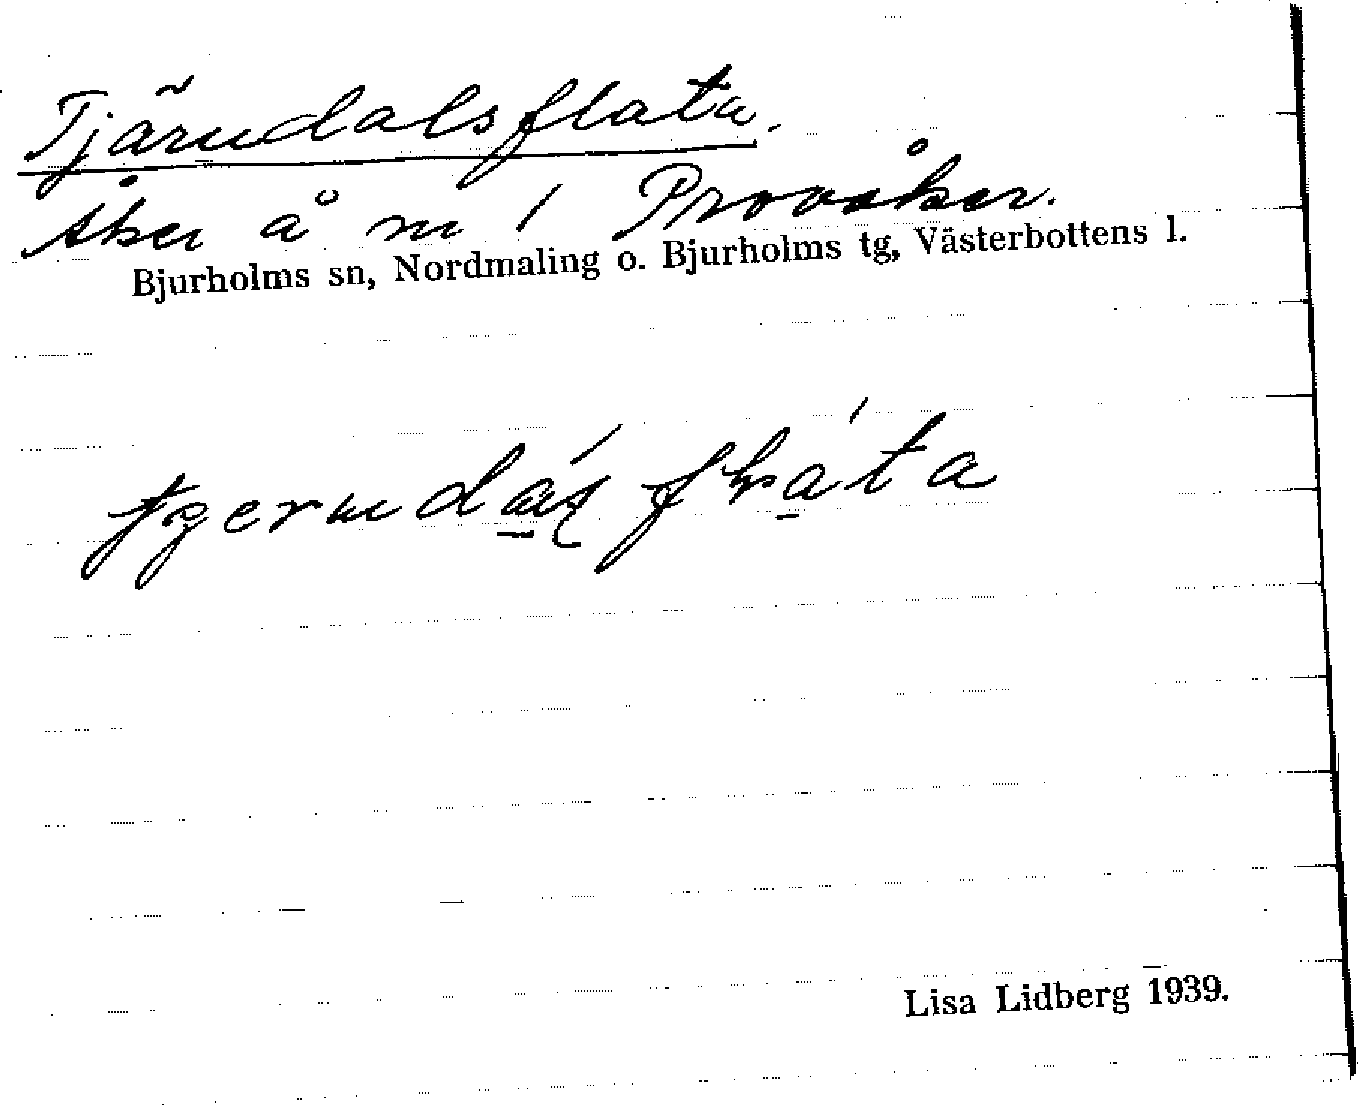 Tjärndalsflata.
Åker å nr 1 Provåker.
Bjurholms sn, Nordmaling o. Bjurholms tg, Västerbottens l.
Lisa Lidberg 1939.